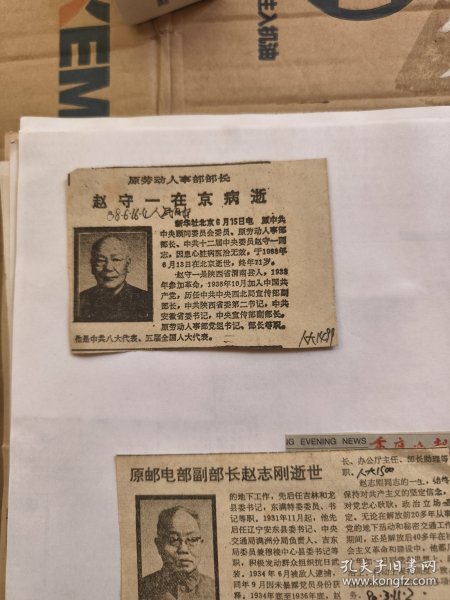 KEM
主入机油
原劳动人事部部长
赵守一在京病逝
88.6.16.人民日报
新华社北京6月15日电 原中共
中央顾问委员会委员、原劳动人事部
部长、中共十二届中央委员赵守一同
志，因患心脏病医治无效，于1988年
6月13日在北京逝世，终年71岁。
赵守一是陕西省渭南县人，1932
年参加革命，1936年10月加入中国共
产党，历任中共中央西北局宣传部副
部长，中共陕西省委第二书记，中共
安徽省委书记，中央宣传部副部长，
原劳动人事部党组书记、部长等职。
他是中共八大代表、五届全国人大代表。
人大1599
NG EVENING NEWS
原邮电部副部长赵志刚逝世
的地下工作，先后任吉林和龙
县委书记，东满特委委员、书
记等职，1931年11月起，他先
后任辽宁安东县委书记，中央
交通局满洲分局负责人、吉东
局委员兼穆棱中心县委书记等
职，积极发动群众组织抗日武
装。1934年6月被敌人逮捕，
同年9月因未暴露党员身份获
释。1934年底至1936年底，赵
长、办公厅主任、部长助理等
职。人大1500
赵志刚同志的一生，
保持对共产主义的坚定信念，
对党忠心耿耿，政治立场
定。无论在解放前20多年从事
党的地下活动和秘密交通工作
期间，还是解放后40多年在
会主义革命和建设中，他都
孔夫子旧书网
kongfz.com